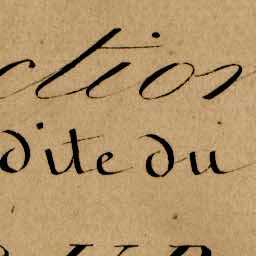 ction
dite du